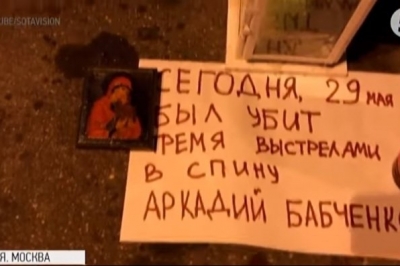 UBE/SOTAVISION
СЕГОДНЯ, 29 МАЯ
БЫЛ УБИТ
ТРЕМЯ ВЫСТРЕЛАМИ
В СПИНУ
АРКАДИЙ БАБЧЕНКО
Я. МОСКВА